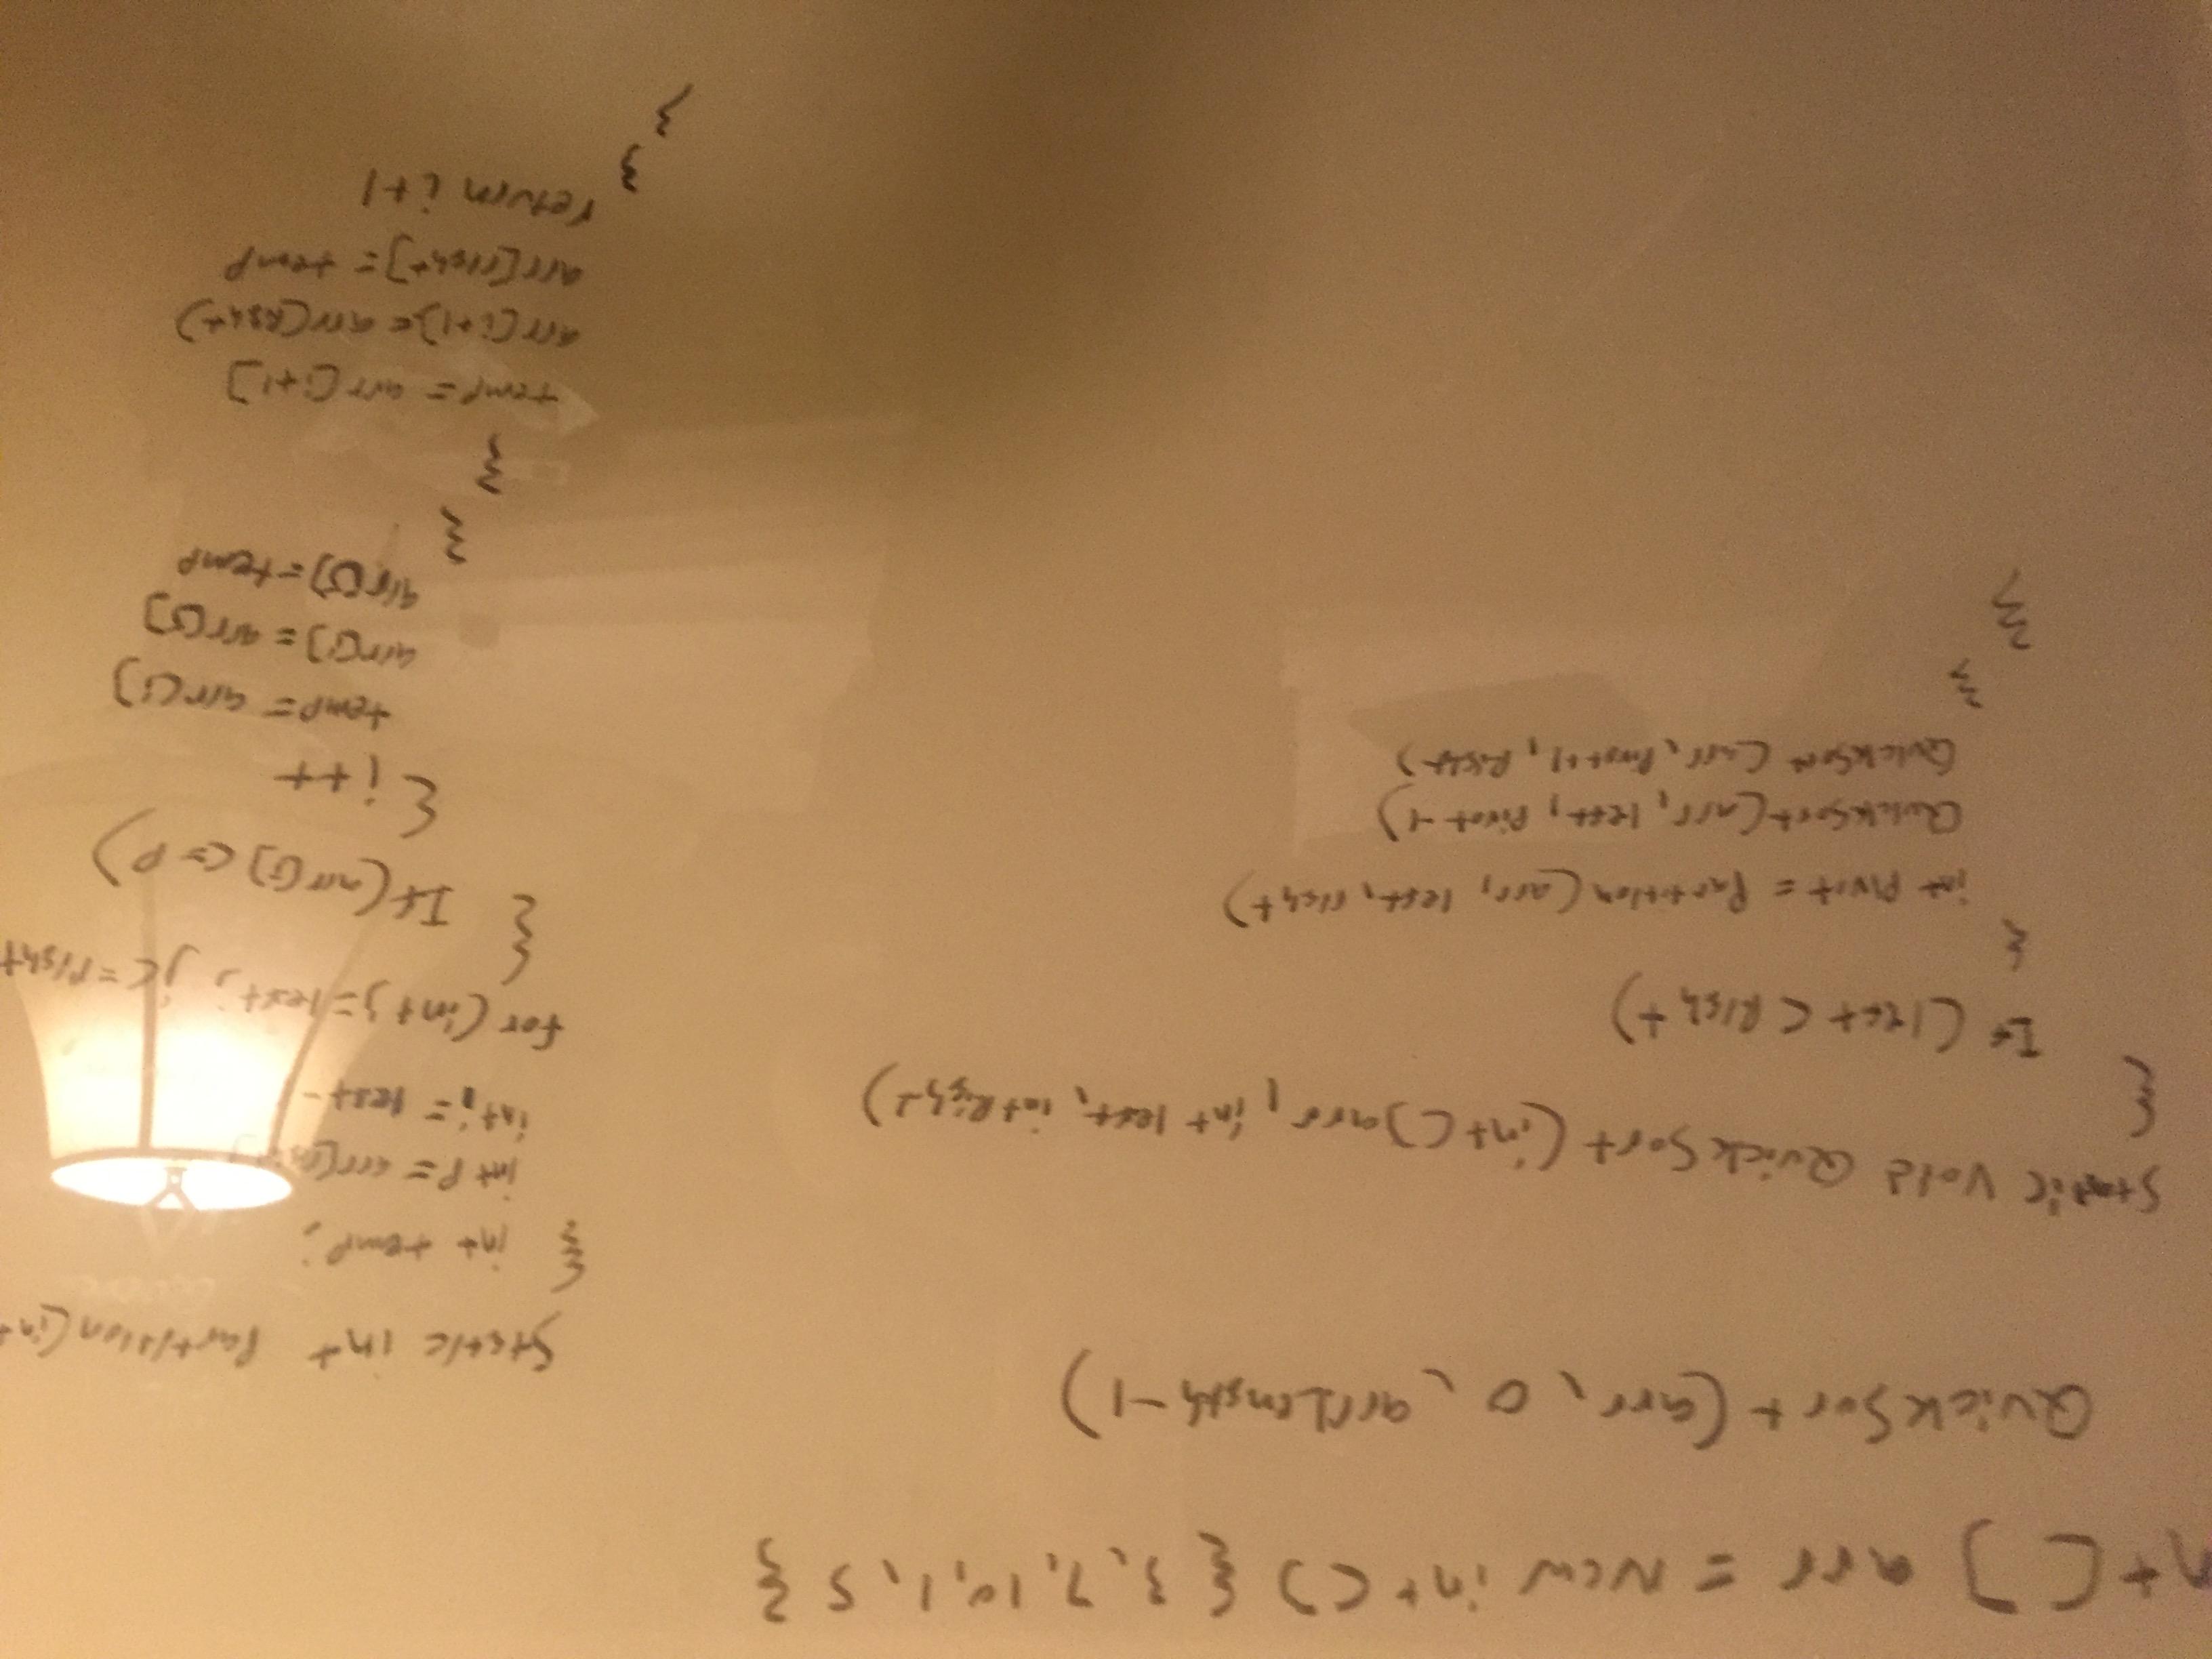 nt[] arr = New int[] { 3, 7, 10, 1, 5 }
QuickSort(arr, 0, arr.Length-1)
Static Void QuickSort(int[]arr, int left, int Right)
{
If (left < Right)
{
int Pivot = Partition(arr, left, right)
QuickSort(arr, left, Pivot-1)
QuickSort(arr, Pivot+1, Right)
}
}
Static int Partition(int
{ int temp;
int P = arr[
int i = left-
for (int j = left; j <= right
{ If(arr[j] <= P)
{ i++
temp = arr[i]
arr[i] = arr[j]
arr[j] = temp
}
}
temp = arr[i+1]
arr[i+1] = arr[Right]
arr[right] = temp
return i+1
}
}